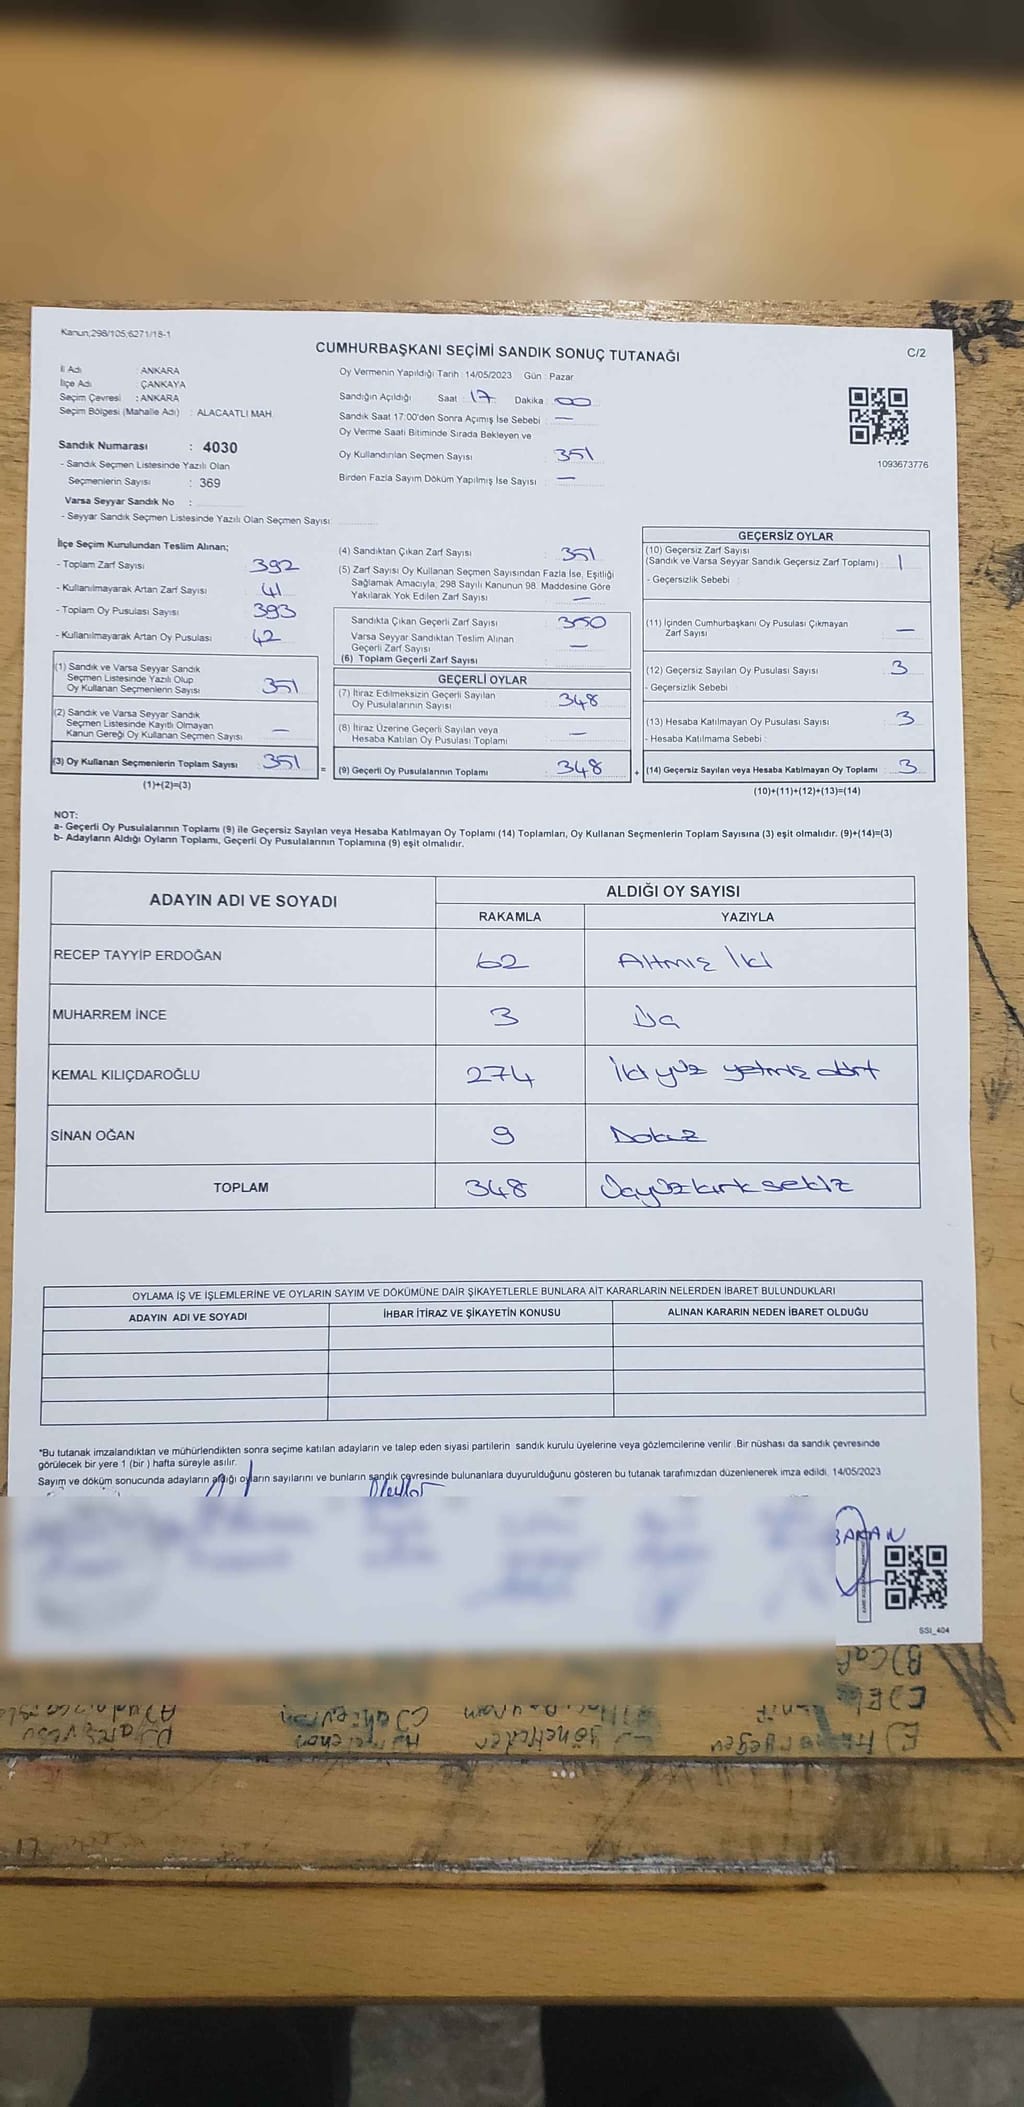 Kanun;298/105,6271/18-1
CUMHURBAŞKANI SEÇİMİ SANDIK SONUÇ TUTANAĞI
C/2
İl Adı : ANKARA
İlçe Adı : ÇANKAYA
Seçim Çevresi : ANKARA
Seçim Bölgesi (Mahalle Adı) : ALACAATLI MAH.
Sandık Numarası : 4030
- Sandık Seçmen Listesinde Yazılı Olan
Seçmenlerin Sayısı : 369
Varsa Seyyar Sandık No :
- Seyyar Sandık Seçmen Listesinde Yazılı Olan Seçmen Sayısı:
Oy Vermenin Yapıldığı Tarih : 14/05/2023 Gün : Pazar
Sandığın Açıldığı Saat : 17 Dakika : 00
Sandık Saat 17:00'den Sonra Açımış İse Sebebi : —
Oy Verme Saati Bitiminde Sırada Bekleyen ve
Oy Kullandırılan Seçmen Sayısı : 351
Birden Fazla Sayım Döküm Yapılmış İse Sayısı : —
1093673776
İlçe Seçim Kurulundan Teslim Alınan;
- Toplam Zarf Sayısı 392
- Kullanılmayarak Artan Zarf Sayısı 41
- Toplam Oy Pusulası Sayısı 393
- Kullanılmayarak Artan Oy Pusulası 42
(1) Sandık ve Varsa Seyyar Sandık
Seçmen Listesinde Yazılı Olup
Oy Kullanan Seçmenlerin Sayısı 351
(2) Sandık ve Varsa Seyyar Sandık
Seçmen Listesinde Kayıtlı Olmayan
Kanun Gereği Oy Kullanan Seçmen Sayısı —
(3) Oy Kullanan Seçmenlerin Toplam Sayısı 351
(1)+(2)=(3)
(4) Sandıktan Çıkan Zarf Sayısı : 351
(5) Zarf Sayısı Oy Kullanan Seçmen Sayısından Fazla İse, Eşitliği
Sağlamak Amacıyla, 298 Sayılı Kanunun 98. Maddesine Göre
Yakılarak Yok Edilen Zarf Sayısı : —
Sandıkta Çıkan Geçerli Zarf Sayısı : 350
Varsa Seyyar Sandıktan Teslim Alınan
Geçerli Zarf Sayısı : —
(6) Toplam Geçerli Zarf Sayısı
GEÇERLİ OYLAR
(7) İtiraz Edilmeksizin Geçerli Sayılan
Oy Pusulalarının Sayısı : 348
(8) İtiraz Üzerine Geçerli Sayılan veya
Hesaba Katılan Oy Pusulası Toplamı : —
= (9) Geçerli Oy Pusulalarının Toplamı : 348
GEÇERSİZ OYLAR
(10) Geçersiz Zarf Sayısı
(Sandık ve Varsa Seyyar Sandık Geçersiz Zarf Toplamı) : 1
- Geçersizlik Sebebi :
(11) İçinden Cumhurbaşkanı Oy Pusulası Çıkmayan
Zarf Sayısı : —
(12) Geçersiz Sayılan Oy Pusulası Sayısı : 3
- Geçersizlik Sebebi :
(13) Hesaba Katılmayan Oy Pusulası Sayısı : 3
- Hesaba Katılmama Sebebi :
+ (14) Geçersiz Sayılan veya Hesaba Katılmayan Oy Toplamı : 3
(10)+(11)+(12)+(13)=(14)
NOT:
a- Geçerli Oy Pusulalarının Toplamı (9) ile Geçersiz Sayılan veya Hesaba Katılmayan Oy Toplamı (14) Toplamları, Oy Kullanan Seçmenlerin Toplam Sayısına (3) eşit olmalıdır. (9)+(14)=(3)
b- Adayların Aldığı Oyların Toplamı, Geçerli Oy Pusulalarının Toplamına (9) eşit olmalıdır.
ADAYIN ADI VE SOYADI ALDIĞI OY SAYISI
RAKAMLA YAZIYLA
RECEP TAYYİP ERDOĞAN 62 Altmış İki
MUHARREM İNCE 3 Üç
KEMAL KILIÇDAROĞLU 274 İki yüz yetmiş dört
SİNAN OĞAN 9 Dokuz
TOPLAM 348 Üçyüz kırk sekiz
OYLAMA İŞ VE İŞLEMLERİNE VE OYLARIN SAYIM VE DÖKÜMÜNE DAİR ŞİKAYETLERLE BUNLARA AİT KARARLARIN NELERDEN İBARET BULUNDUKLARI
ADAYIN ADI VE SOYADI İHBAR İTİRAZ VE ŞİKAYETİN KONUSU ALINAN KARARIN NEDEN İBARET OLDUĞU
*Bu tutanak imzalandıktan ve mühürlendikten sonra seçime katılan adayların ve talep eden siyasi partilerin sandık kurulu üyelerine veya gözlemcilerine verilir. Bir nüshası da sandık çevresinde
görülecek bir yere 1 (bir ) hafta süreyle asılır.
Sayım ve döküm sonucunda adayların aldığı oyların sayılarını ve bunların sandık çevresinde bulunanlara duyurulduğunu gösteren bu tutanak tarafımızdan düzenlenerek imza edildi. 14/05/2023
SSI_404